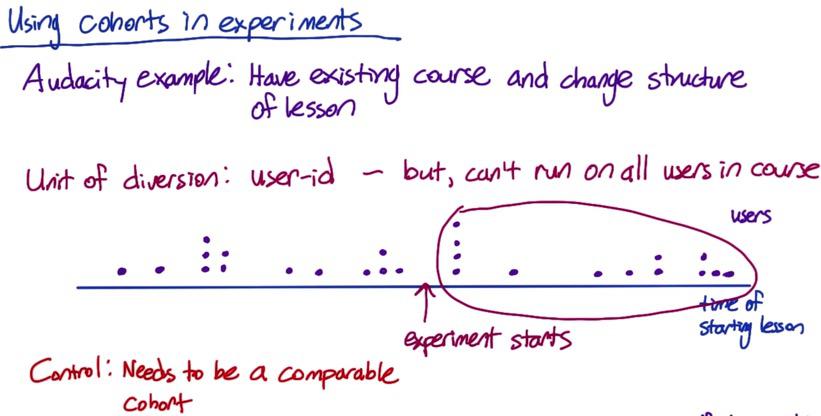 Using cohorts in experiments
Audacity example: Have existing course and change structure
of lesson
Unit of diversion: user-id – but, can't run on all users in course
users
time of
starting lesson
experiment starts
Control: Needs to be a comparable
cohort